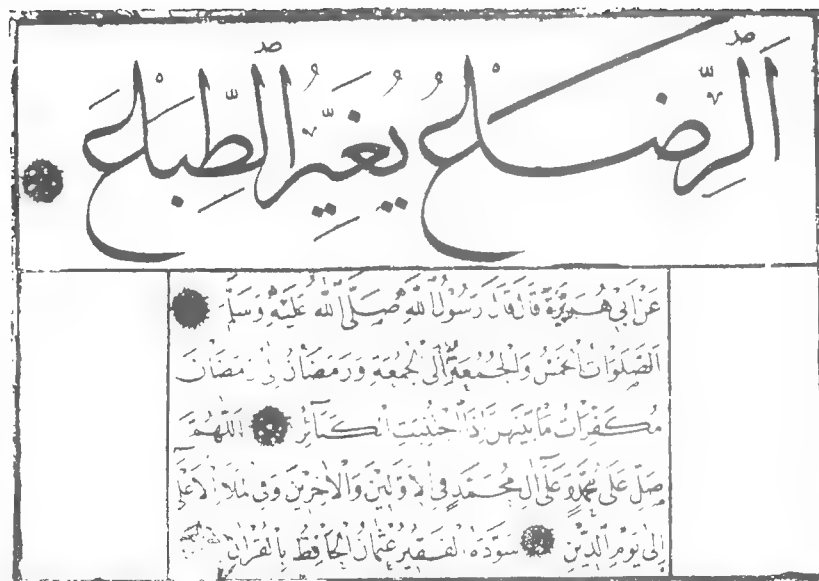 اَلرِّضَاعُ يُغَيِّرُ الطِّبَاعَ
عَنْ اَبِي هُرَيْرَةَ قَالَ قَالَ رَسُولُ اللّٰهِ صَلَّى اللّٰهُ عَلَيْهِ وَسَلَّمَ
اَلصَّلَوَاتُ الْخَمْسُ وَالْجُمُعَةُ اِلَى الْجُمُعَةِ وَرَمَضَانُ اِلٰى رَمَضَانَ
مُكَفِّرَاتُ مَا بَيْنَهُنَّ اِذَا اجْتُنِبَتِ الْكَبَآئِرُ اَللّٰهُمَّ
صَلِّ عَلٰى مُحَمَّدٍ وَعَلٰٓى اٰلِ مُحَمَّدٍ فِي الْاَوَّلِينَ وَالْاٰخِرِينَ وَفِي الْمَلَاِ الْاَعْلٰى
اِلٰى يَوْمِ الدِّينِ سَوَّدَهُ الْفَقِيرُ عُثْمَانُ الْحَافِظُ بِالْقُرْاٰنِ